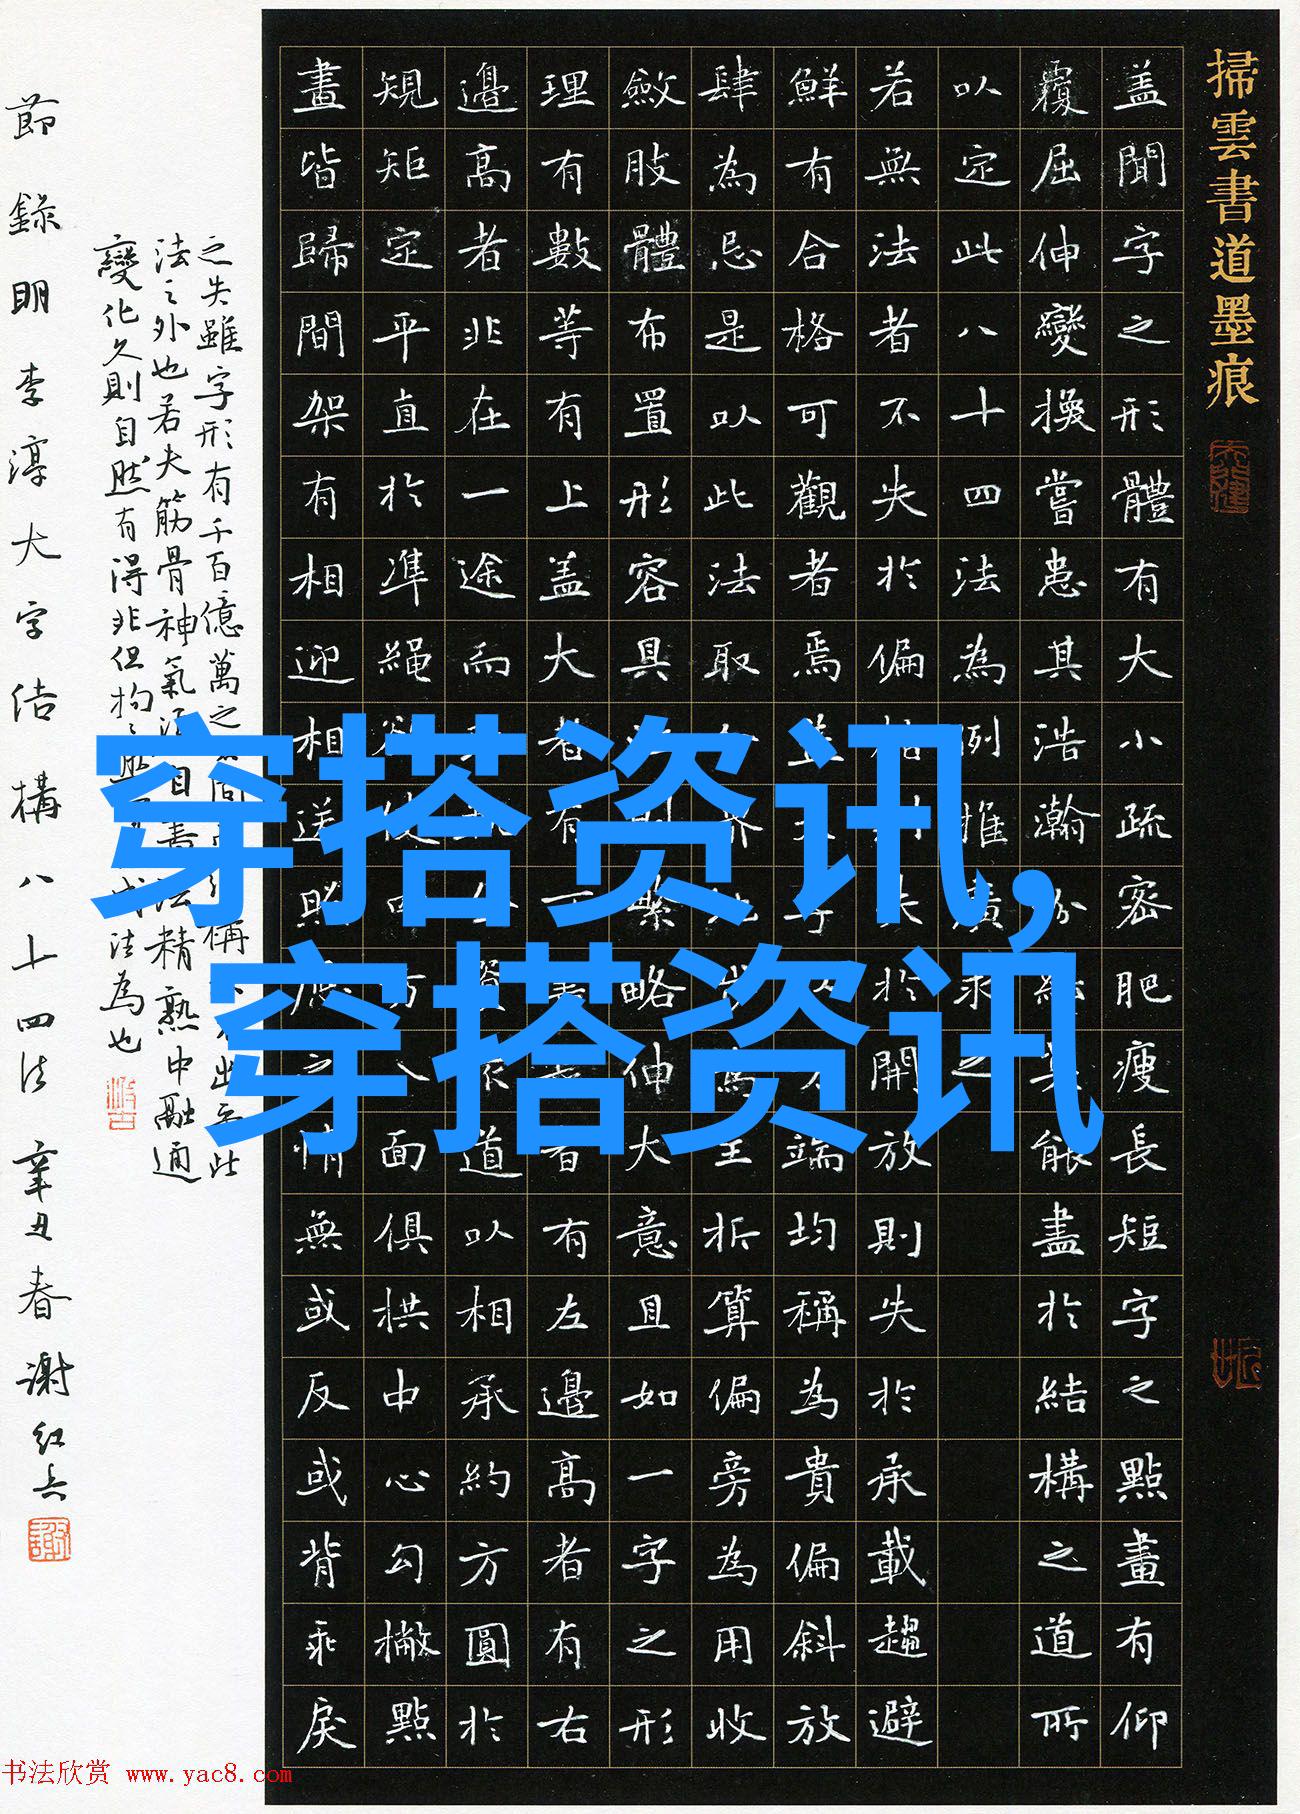 掃雲書道墨痕
盖聞字之形體有大小疏密肥瘦長短字之點畫有仰
覆屈伸變換嘗患其浩瀚紛紜莫能盡於結構之道所
以定此八十四法為例推廣求之
若無法者不失於偏枯則失於開放則失於承載趨避
鮮有合格可觀者焉盖字端均稱為貴偏斜放
肆為忌是以此法取主析算偏旁為用收
斂肢體布置形容具則繁略伸大意且如一字之形
理有數等有上盖大者有下者有左邊高者有右
邊高者非在一途而道以相承約方圓於
規矩定平直於準繩欲使四方八面俱拱中心勾撇點
畫皆歸間架有相迎相送照應之情無或反或背乖戾
之失雖字形有千百億萬之不出乎此
法之外也若夫筋骨神氣須自書法精熟中融通
變化久則自然有得非但拘成法為也
節錄明李淳大字結構八十四法 辛丑春 謝紅兵
穿搭资讯,
穿搭资讯
书法欣赏 www.yac8.com